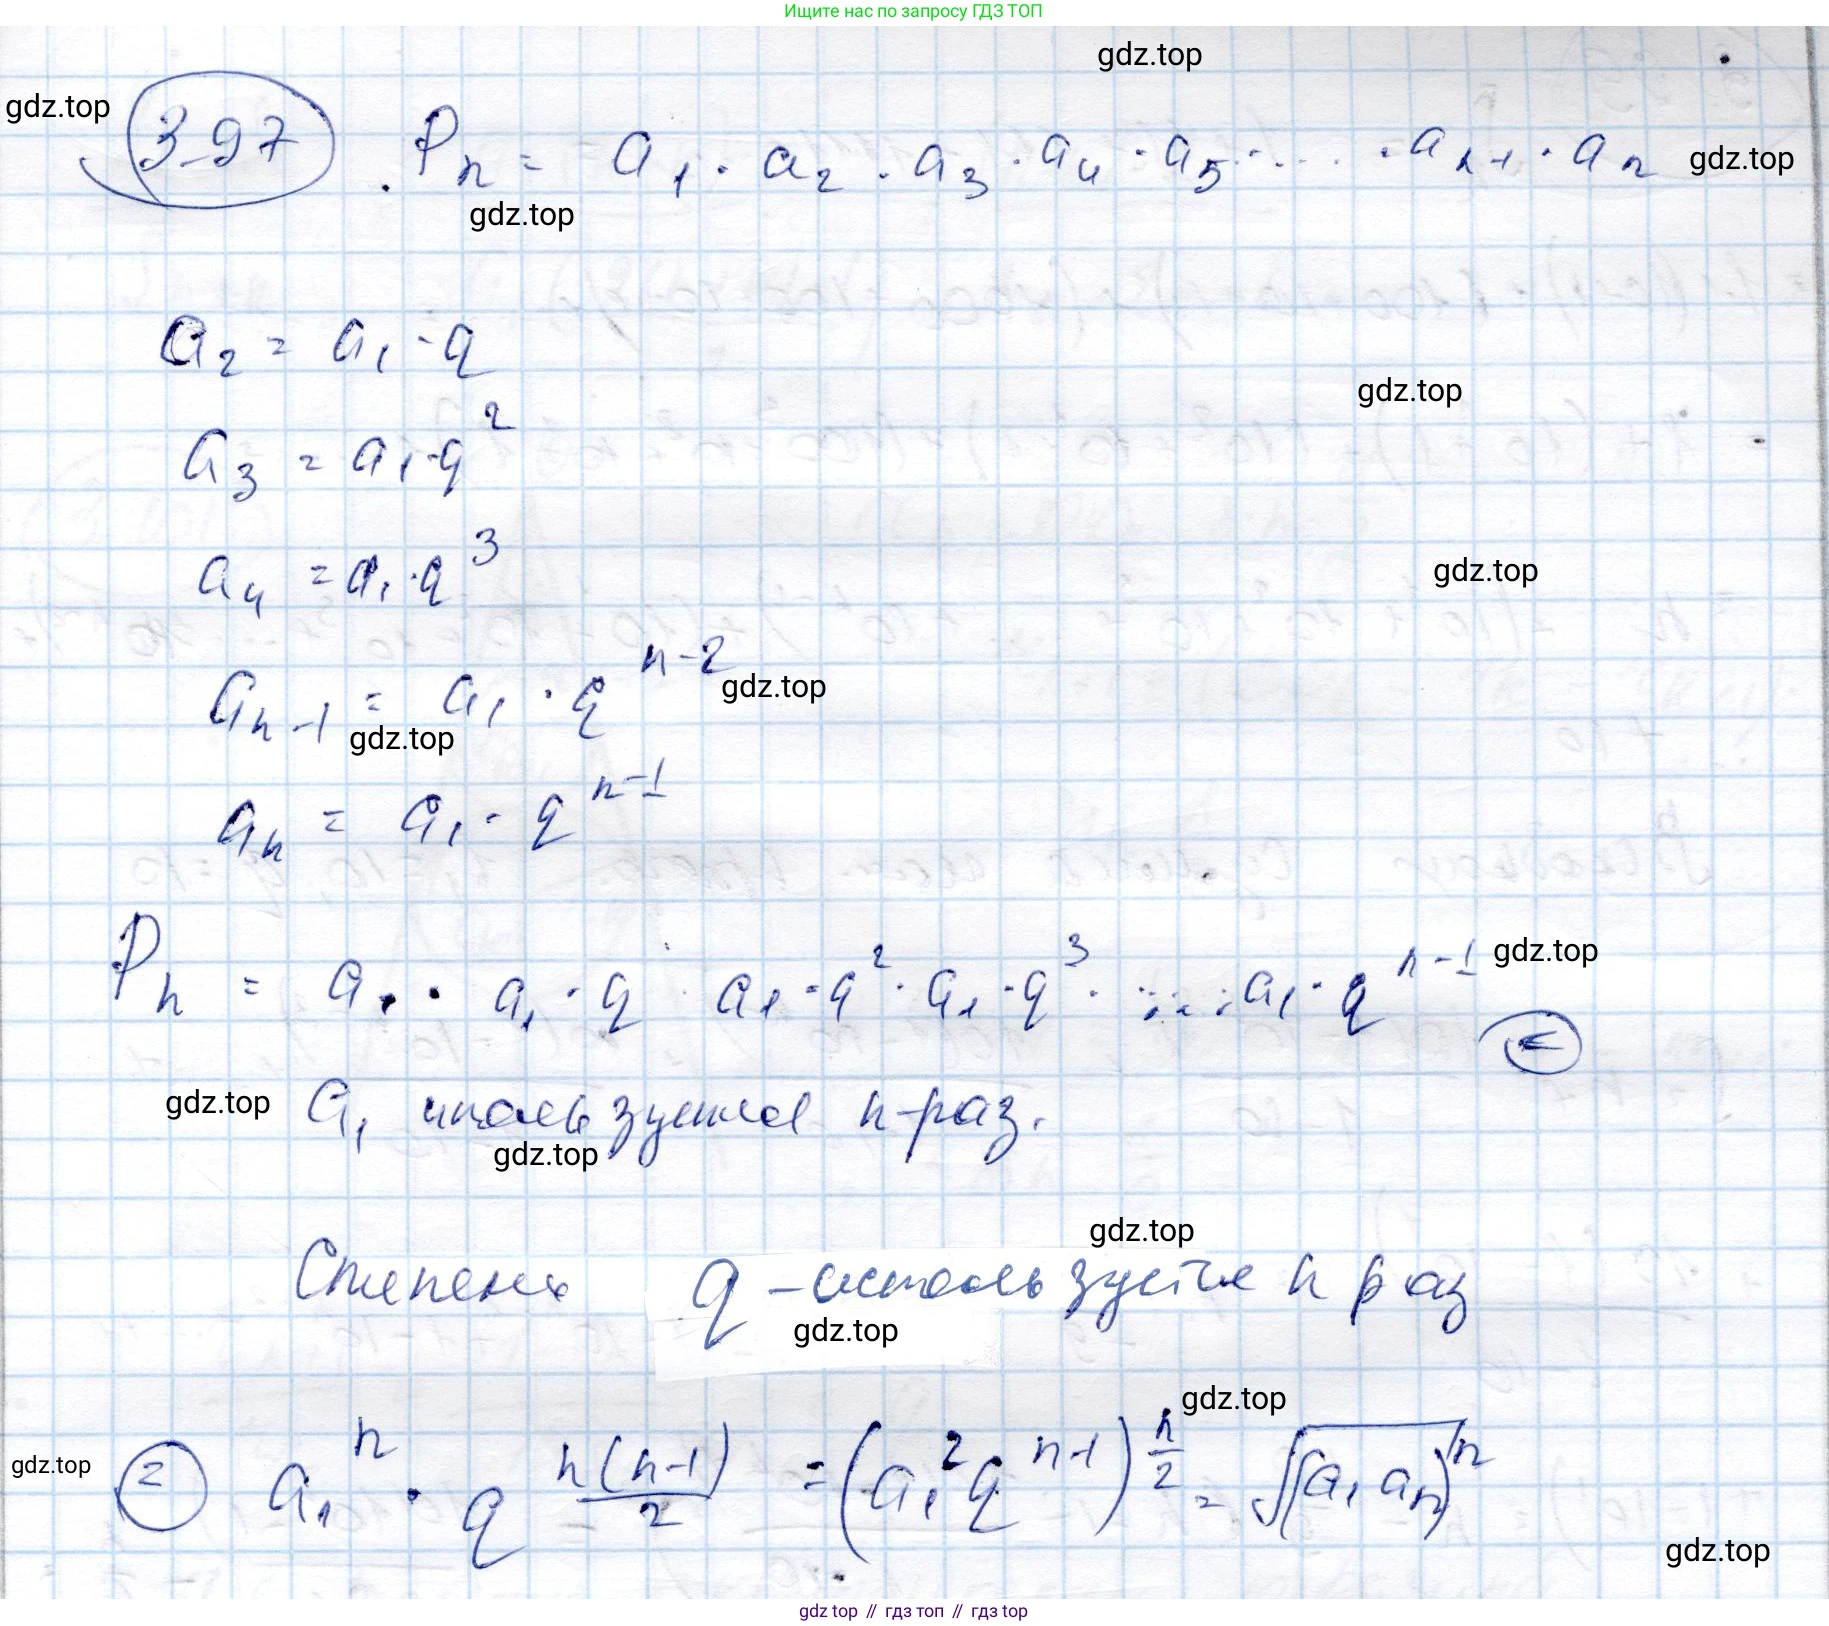 Ищите нас по запросу ГДЗ ТОП
gdz.top
gdz.top
3.97 Pₙ = a₁ · a₂ · a₃ · a₄ · a₅ · ... · aₙ₋₁ · aₙ gdz.top
gdz.top
a₂ = a₁ · q
gdz.top
a₃ = a₁ · q²
a₄ = a₁ · q³
gdz.top
aₙ₋₁ = a₁ · qⁿ⁻²
gdz.top
gdz.top
aₙ = a₁ · qⁿ⁻¹
Pₙ = a₁ · a₁ · q · a₁ · q² · a₁ · q³ · ... · a₁ · qⁿ⁻¹ =
gdz.top
gdz.top
a₁ используется n раз.
gdz.top
gdz.top
Степень q – используется n раз
gdz.top
gdz.top
gdz.top
= a₁ⁿ · q^(n(n-1)/2) = (a₁² qⁿ⁻¹)^(n/2) = √(a₁ aₙ)ⁿ
gdz.top
gdz top // гдз топ // гдз top